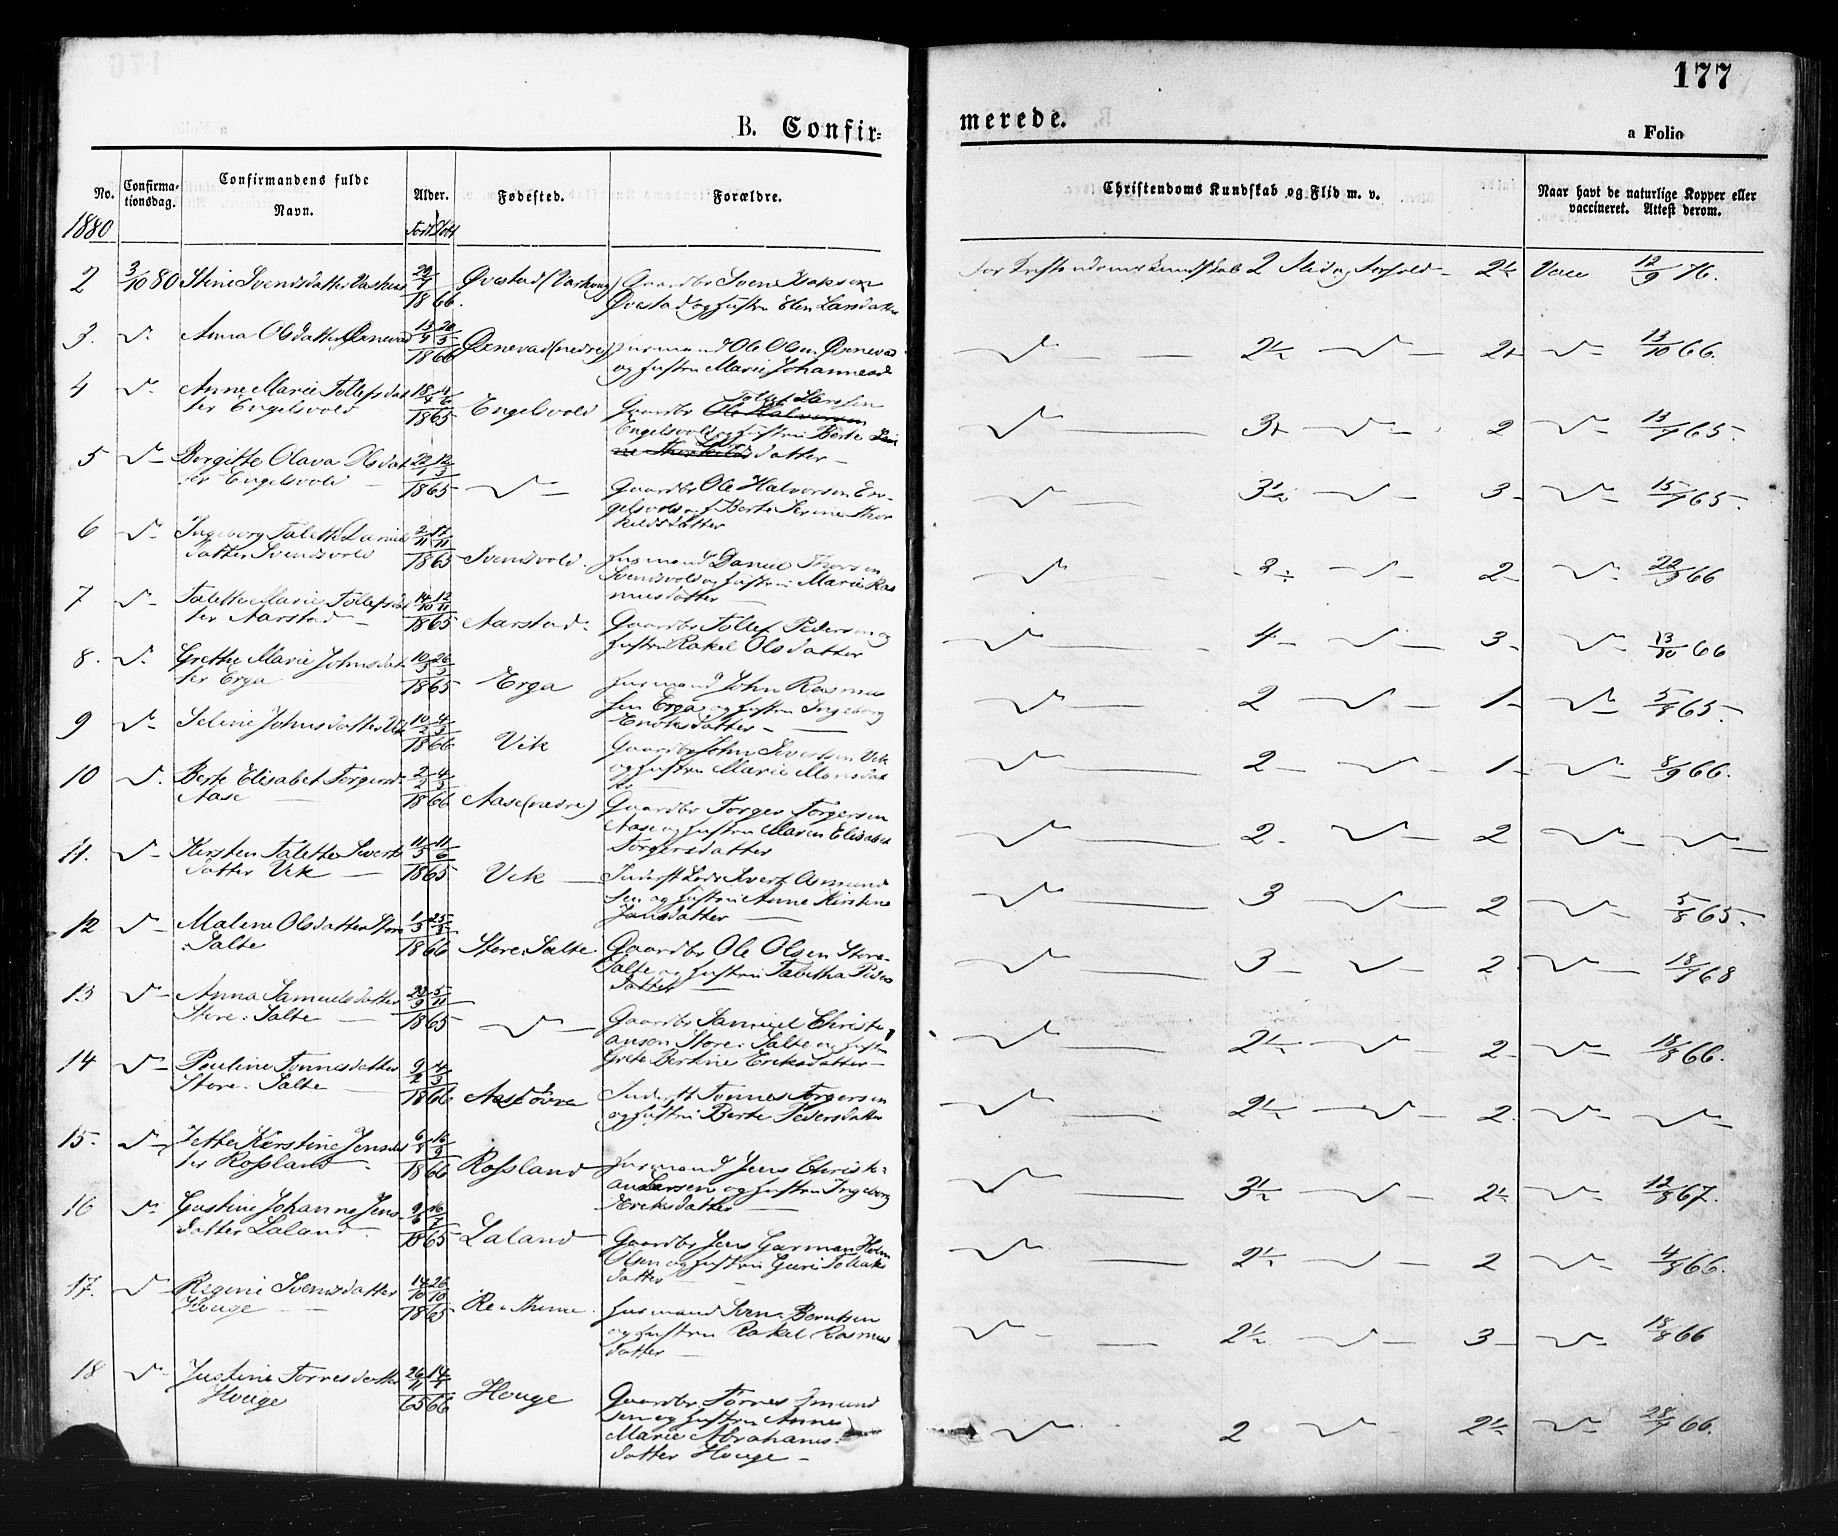 177
B. Confir-
merede.
a Folio
No.
Confirma-
tionsdag.
Confirmandens fulde
Navn.
Alder.
Fødested.
Forældre.
Christendoms Kundskab og Flid m. v.
Naar havt de naturlige Kopper eller
vaccineret. Attest derom.
1880
Født Døbt
2 3/10 80 Stine Svendsdatter 29/1 1866. Øvestad Gaardbr Svend
Øvestad og hustru Elen Larsdatter
for Kristendomskundskab 2 Flid og Forhold 2½ Vacc 12/9 76.
3. Anna Olsdatter Øxnevad 1866 Øxnevad (nedre) husmand Ole Olsen Øxnevad
og hustru Marie Johannesd
2½ 2+ 13/10 66.
4 Anne Marie Tollefsdat
ter Engelsvold 1865 Engelsvold Gaardbr Tollef Larsen
Engelsvold og hustru Berte
datter
3+ 2 65.
5 Bergitte Olava Olsdat
ter Engelsvold 22/1 12/3 1865 Gaardbr Ole Halvorsen En-
gelsvold og f Berte Serine Thor
kildsdatter
3½ 3 65.
6 Ingeborg Talette Daniels
datter Svendsvold 2/11 1865 Svendsvold. husmand Daniel Thorsen
Svendsvold og hustru Marie Ras
musdatter
2 2 22/3 66
7 Talette Marie Tollefsdat
ter Aarstad 14/10 12/11 1865 Aarstad Gaardbr Tollef Pedersen og
hustru Rakel Olsdatter
4 3 13/10 66
8. Grethe Marie Johnsdat
ter Erga 10/3 26/3 1865 Erga husmand John Rasmus
sen Erga og hustru Ingeborg
Enoksdatter
2 1 5/8 65.
9 Seline Johnsdatter Vik 10/2 4/3 1866 Vik Gaardbr John Sivertsen Vik
og hustru Marie Monsdat
ter
2 1 8/9 66.
10 Berte Elisabet Torgersd
Aase 2/2 4/3 1866 Aase (nedre) Gaardbr Torger Torgersen
Aase og hustru Maren Elisabet
Torgersdatter
2. 2
11. Kersten Talette Siverts
datter Vik 11/5 11/6 1865 Vik Inderst Lods Sivert Asmund
sen og hustru Anne Kirstine
Jonsdatter
3 2 5/8 65.
12 Malene Olsdatter Store
Salte 1/3 25/3 1866 Store: Salte Gaardbr Ole Olsen Store-
Salte og hustru Tabitha Peders
datter
3 2 68
13 Anna Samuelsdatter
Store: Salte 5/11 1865 Gaardbr Samuel Christi
ansen Store: Salte og hustru
Grete Bertine Eriksdatter
2½ 2 18/8 66.
14 Pauline Tønnesdatter
Store: Salte 9/2 4/3 1866 Aase øvre Inderst Tønnes Torgersen
og hustru Berte Pedersdatter
2½ 2
15. Jette Kerstine Jensdat
ter Rossland 1866 Rossland husmand Jens Christi-
an Larsen og hustru Ingeborg
Eriksdatter
3½ 2½ 12/8 67.
16 Gustine Johanne Jens-
datter Laland 9/6 16/7 1865 Laland Gaardbr Jens Garman Holm
Olsen og hustru Guri Tollaks
datter
2½ 2 4/8 66.
17. Regine Svendsdatter
Houge 14/10 26/10 1865 husmand Sven Berntsen
og hustru Rakel Rasmus
datter
2½ 3 18/8 66
18 Justine Torresdatter
Houge 65 66 Houge Gaardbr Torres
sen og hustru Anne
Marie Abrahams-
datter Houge
2 2½ 66.